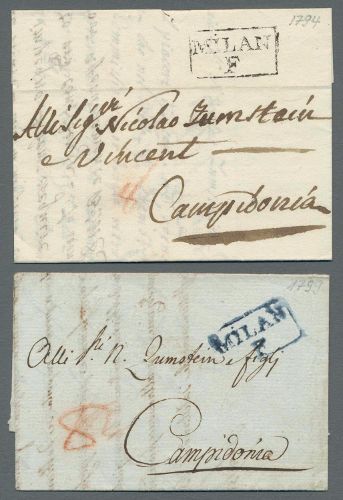 1794
MILAN
F
Alli Sig.ri Nicolao Zumstein
e Vincent
Campidonia
1799
MILAN
Alli S.ri N. Zumstein e figlj
Campidonia